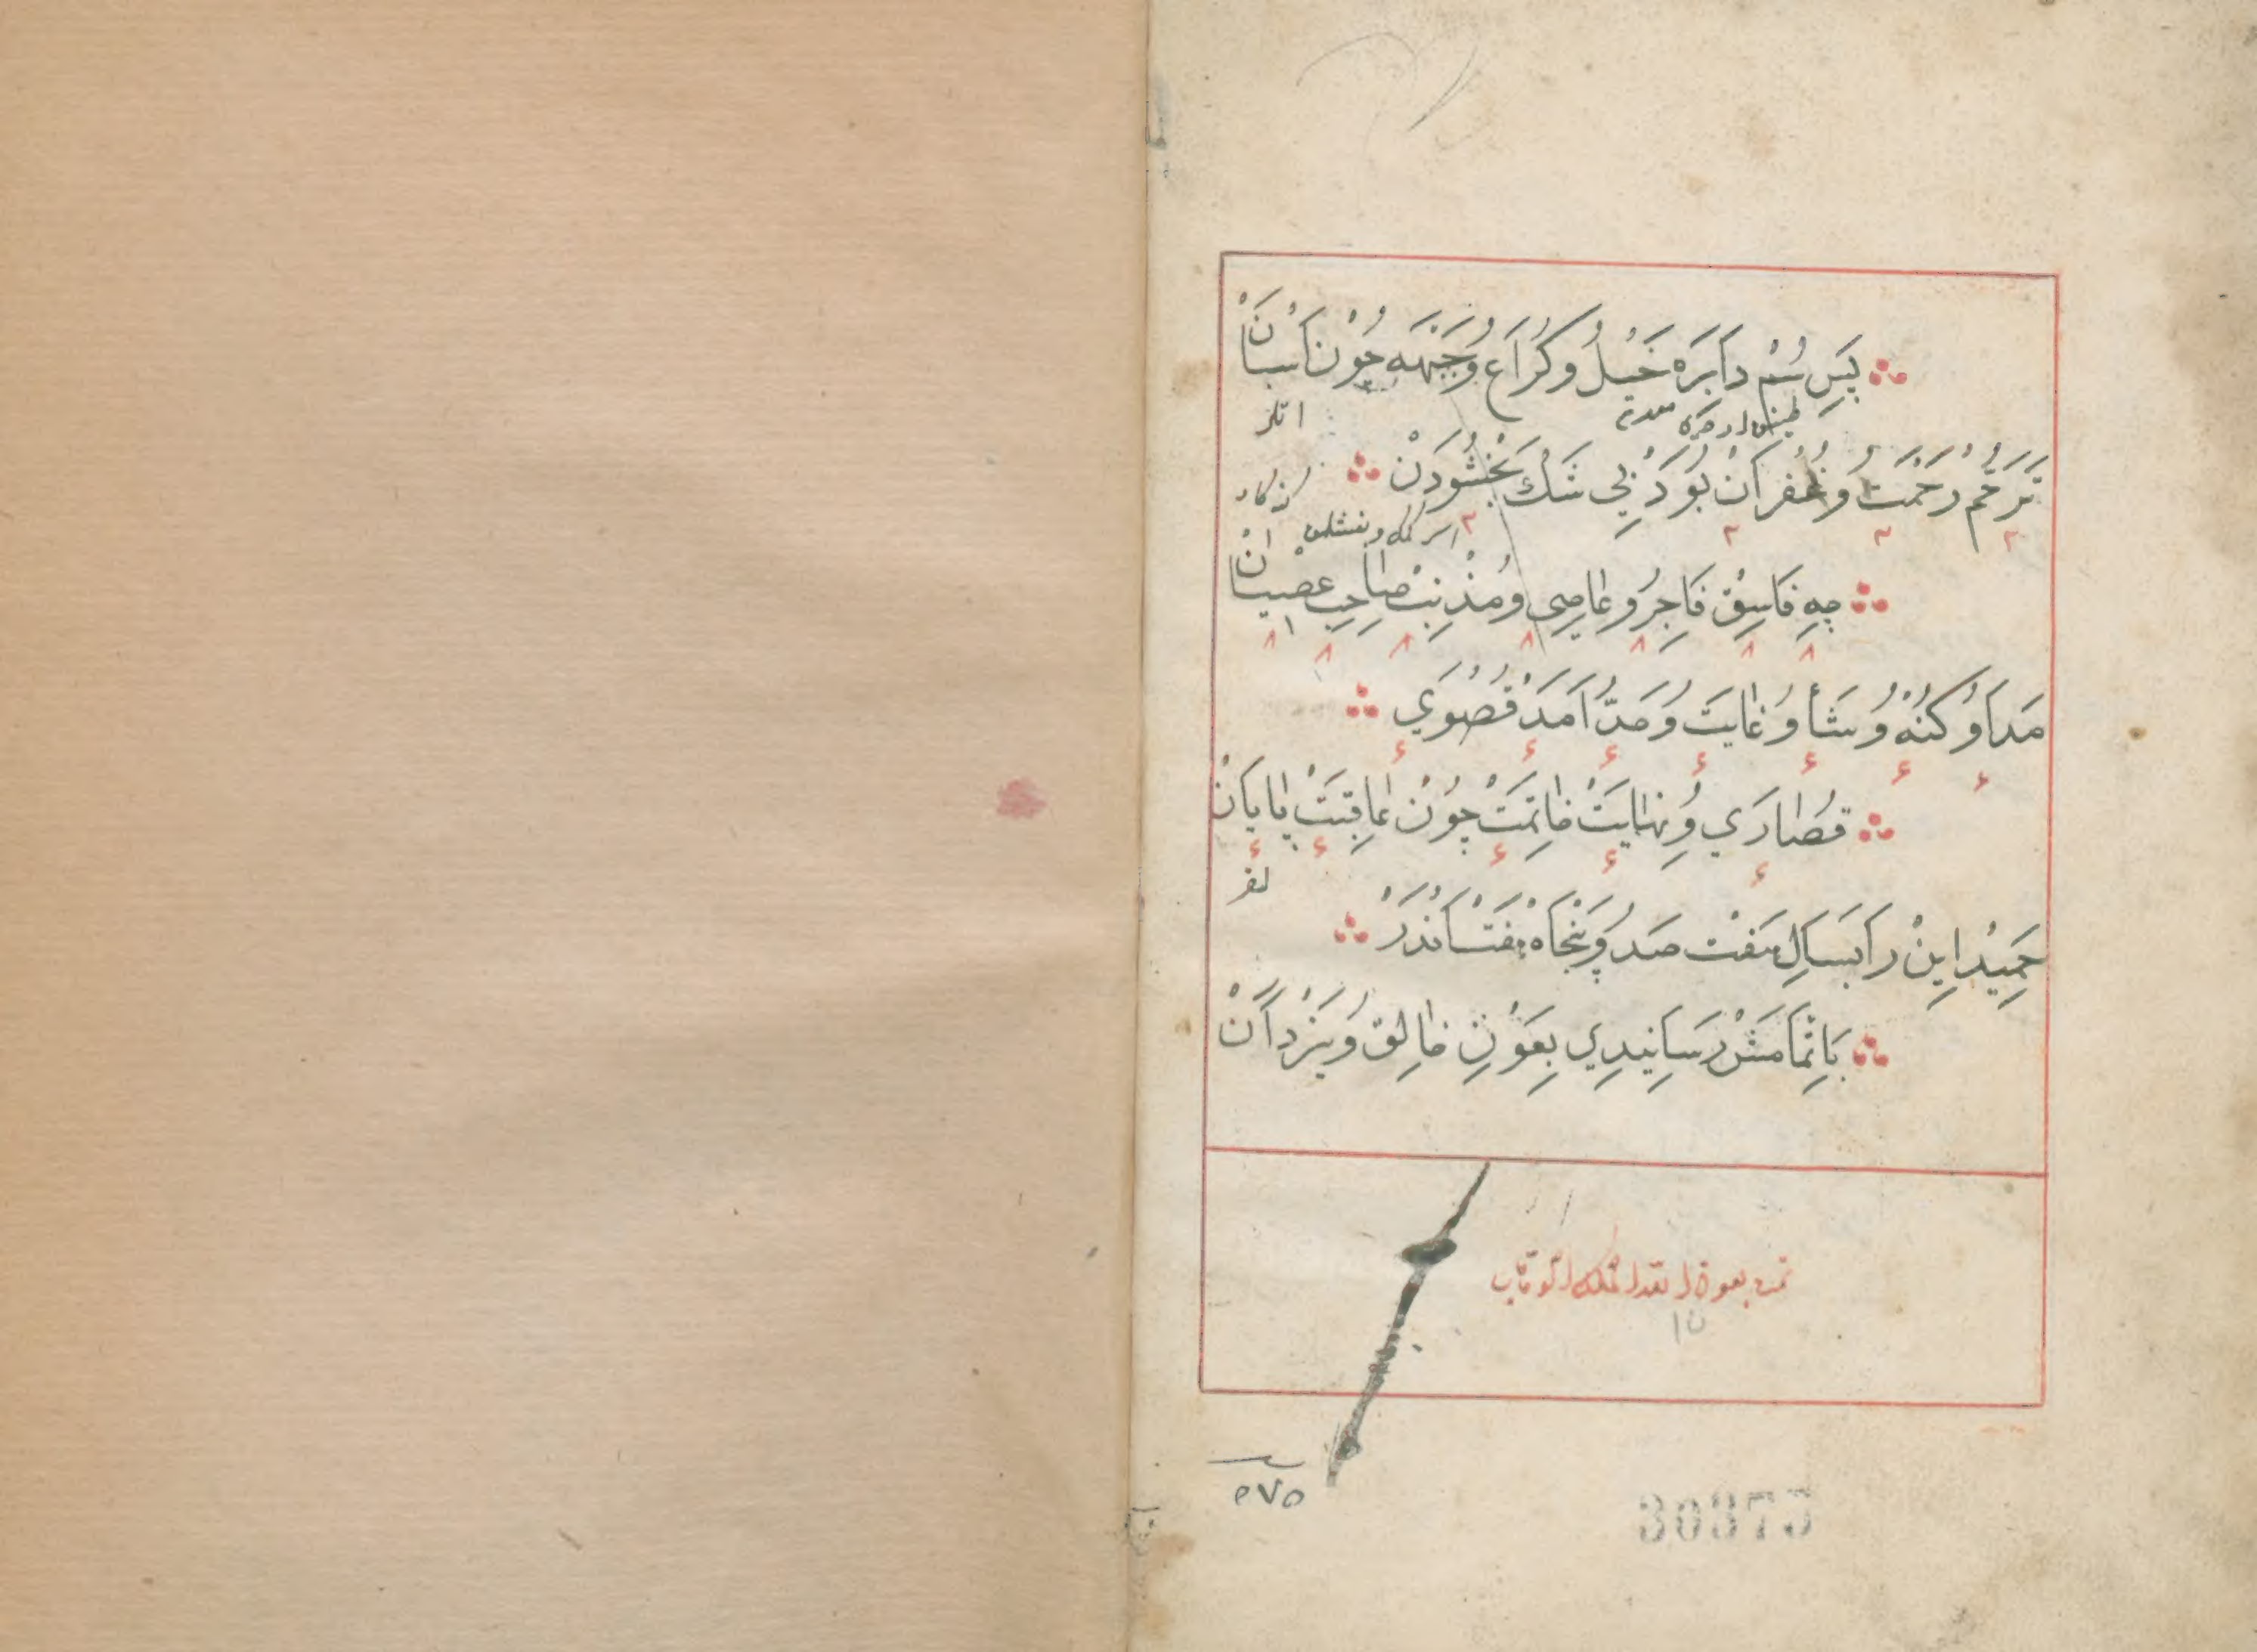 پَسِ سُمْ دَابَرَه خَيْلُ وكُرَاع وُجَبْهَه چُون اَسْبَانْ
اتلر
تَرَحُّم رَحْمَتُ وُ غُفْرَانْ بُوَدْ بِي شَكْ بَخْشُودَنْ
چِهِ فَاسِقْ فَاجِرُ وعَاصِي و مُذْنِبْ صَاحِبِ عِصْيَانْ
مَدَا وُ كُنْهُ وُ شَأْ وُ غَايَتْ وُ حَدُّ اَمَدْ قُصْوَي
قُصَارَي وُ نِهَايَتْ خَاتِمَتْ چُونْ عَاقِبَتْ پَايَانْ
حَمِيدْ اِينْ رَا بَسَالِ هَفْت صَدُ وُ پَنْجَاهُ هَفْتْ اَنْدَرْ
بَاِتْمَامَشْ رَسَانِيدِي بِعَوْنِ خَالِق وُ يَزْدَانْ
تمت بعون الله الملك الوهاب
١٥
٥٧٥
30375